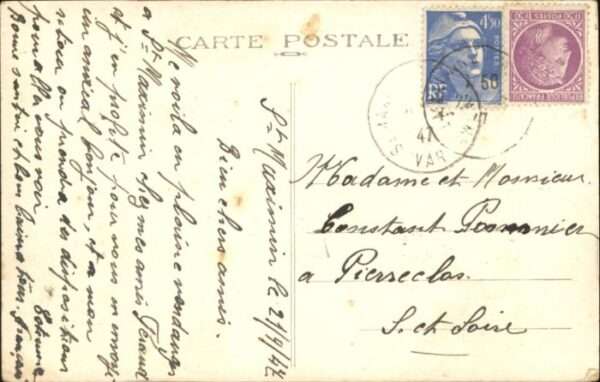 CARTE POSTALE
4,50
RF
POSTES
ST MAX
47
VAR
St Maximin le 21/9/47
Bien chers amis.
Me voilà en pleine vendanges
a St Maximin chez mes amis
et j'en profite pour vous envoyer
un amical bonjour, et a mon
retour on prendra des dispositions
pour aller vous voir
Bonne santé et bien
Madame et Monsieur
Constant Pommier
a Pierreclos
S. et Loire